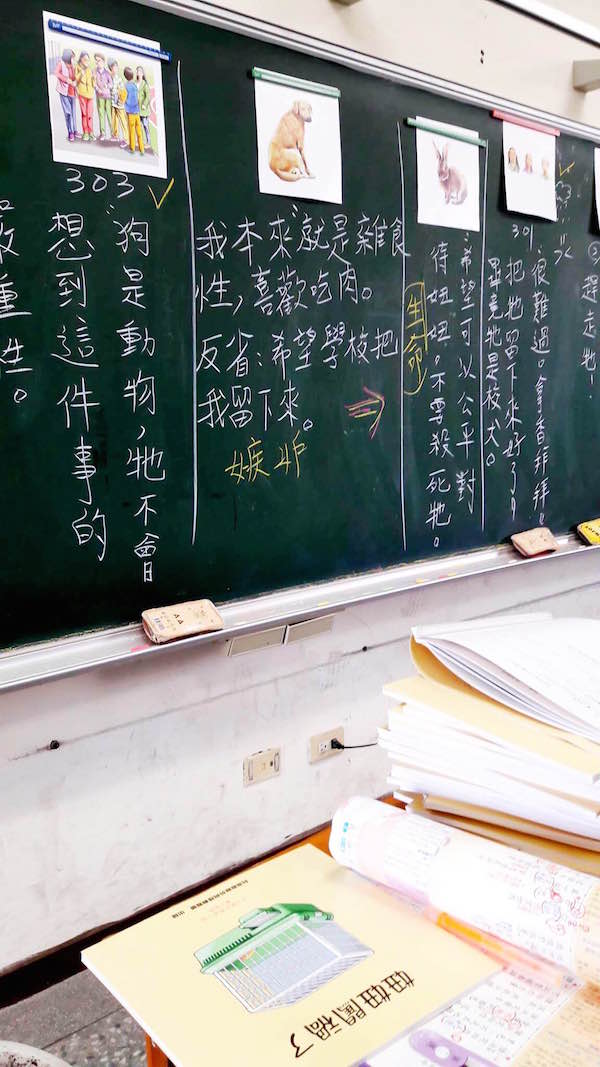 ③趕走牠!
301
很難過。拿香拜拜。
把牠留下來好了!
畢竟牠是校犬。
希望可以公平對
待妞妞。不要殺死牠。
生命
我本來就是雜食
性,喜歡吃肉。
反省:希望學校把
我留下來。
嫉妒
303
狗是動物,牠不會
想到這件事的
嚴重性。
妞妞闖禍了